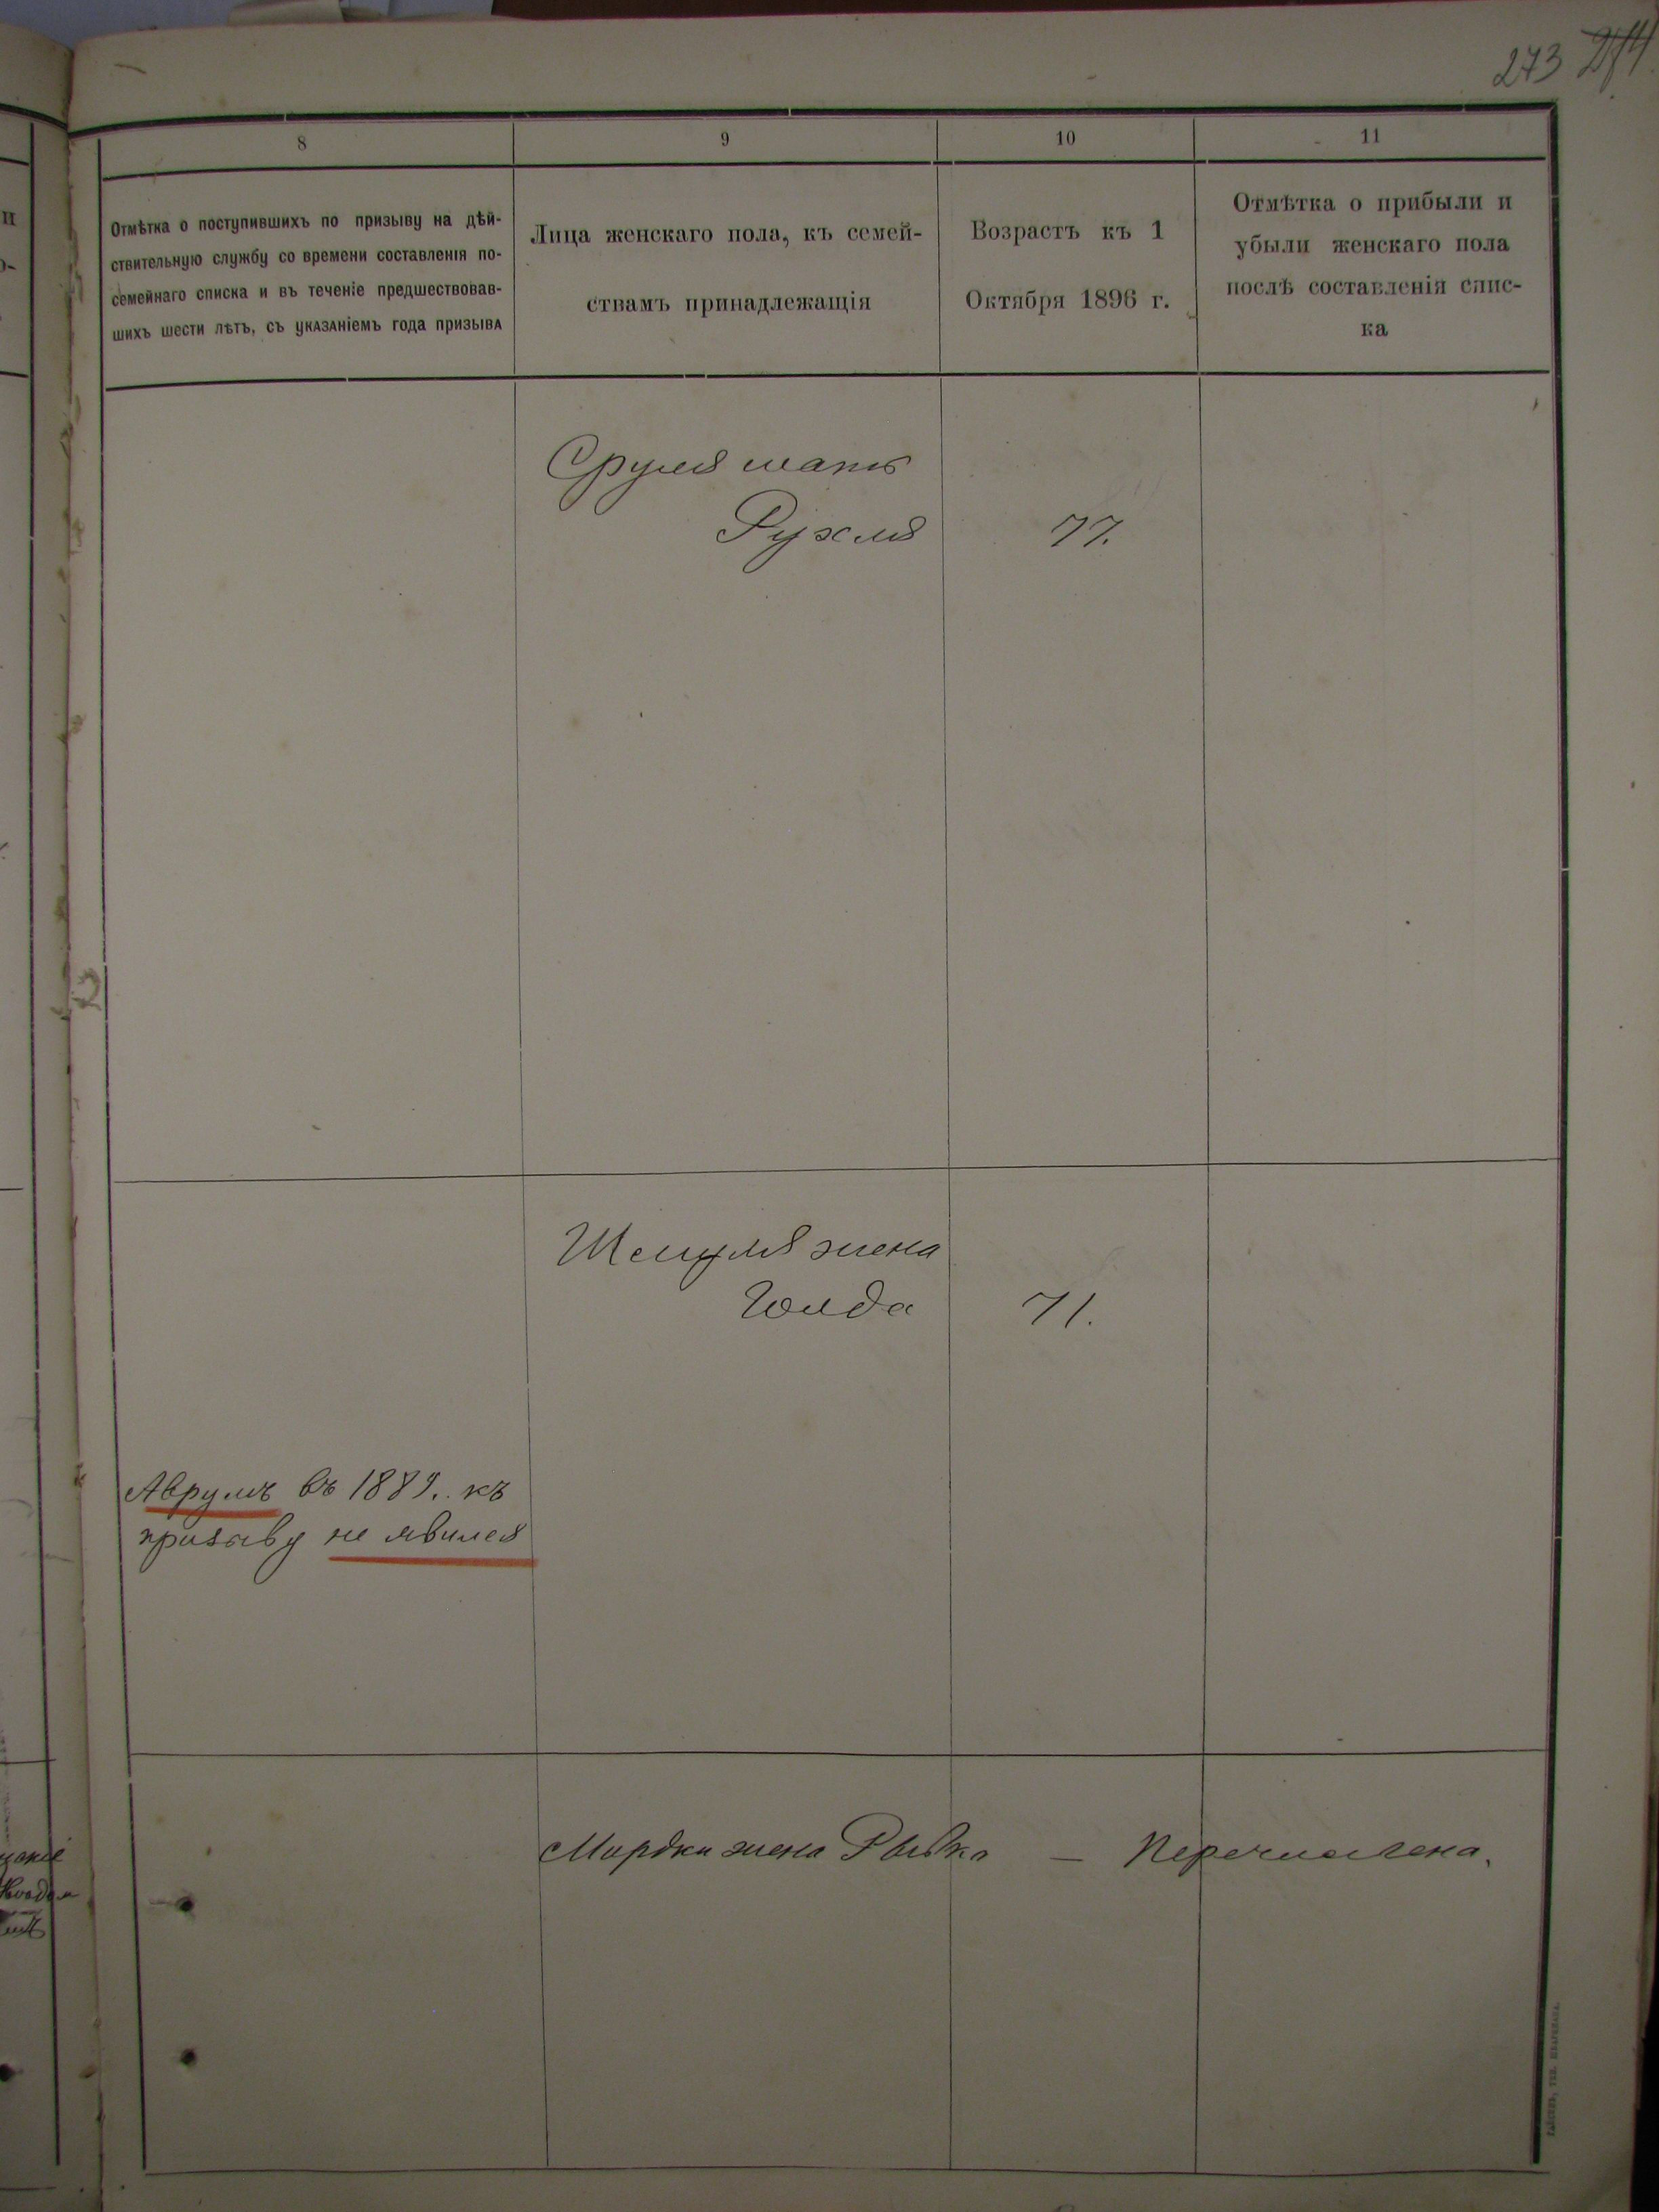 273 274
8 9 10 11
Отмѣтка о поступившихъ по призыву на дѣй-
ствительную службу со времени составленія по-
семейнаго списка и въ теченіе предшествовав-
шихъ шести лѣтъ, съ указаніемъ года призыва
Лица женскаго пола, къ семей-
ствамъ принадлежащія
Возрастъ къ 1
Октября 1896 г.
Отмѣтка о прибыли и
убыли женскаго пола
послѣ составленія спис-
ка
Сруля мать
Рухля 77.
Шмуля жена
Голда 71.
Аврумъ въ 1889. къ
призыву не явился
Мордки жена Рывка — Перечислена.